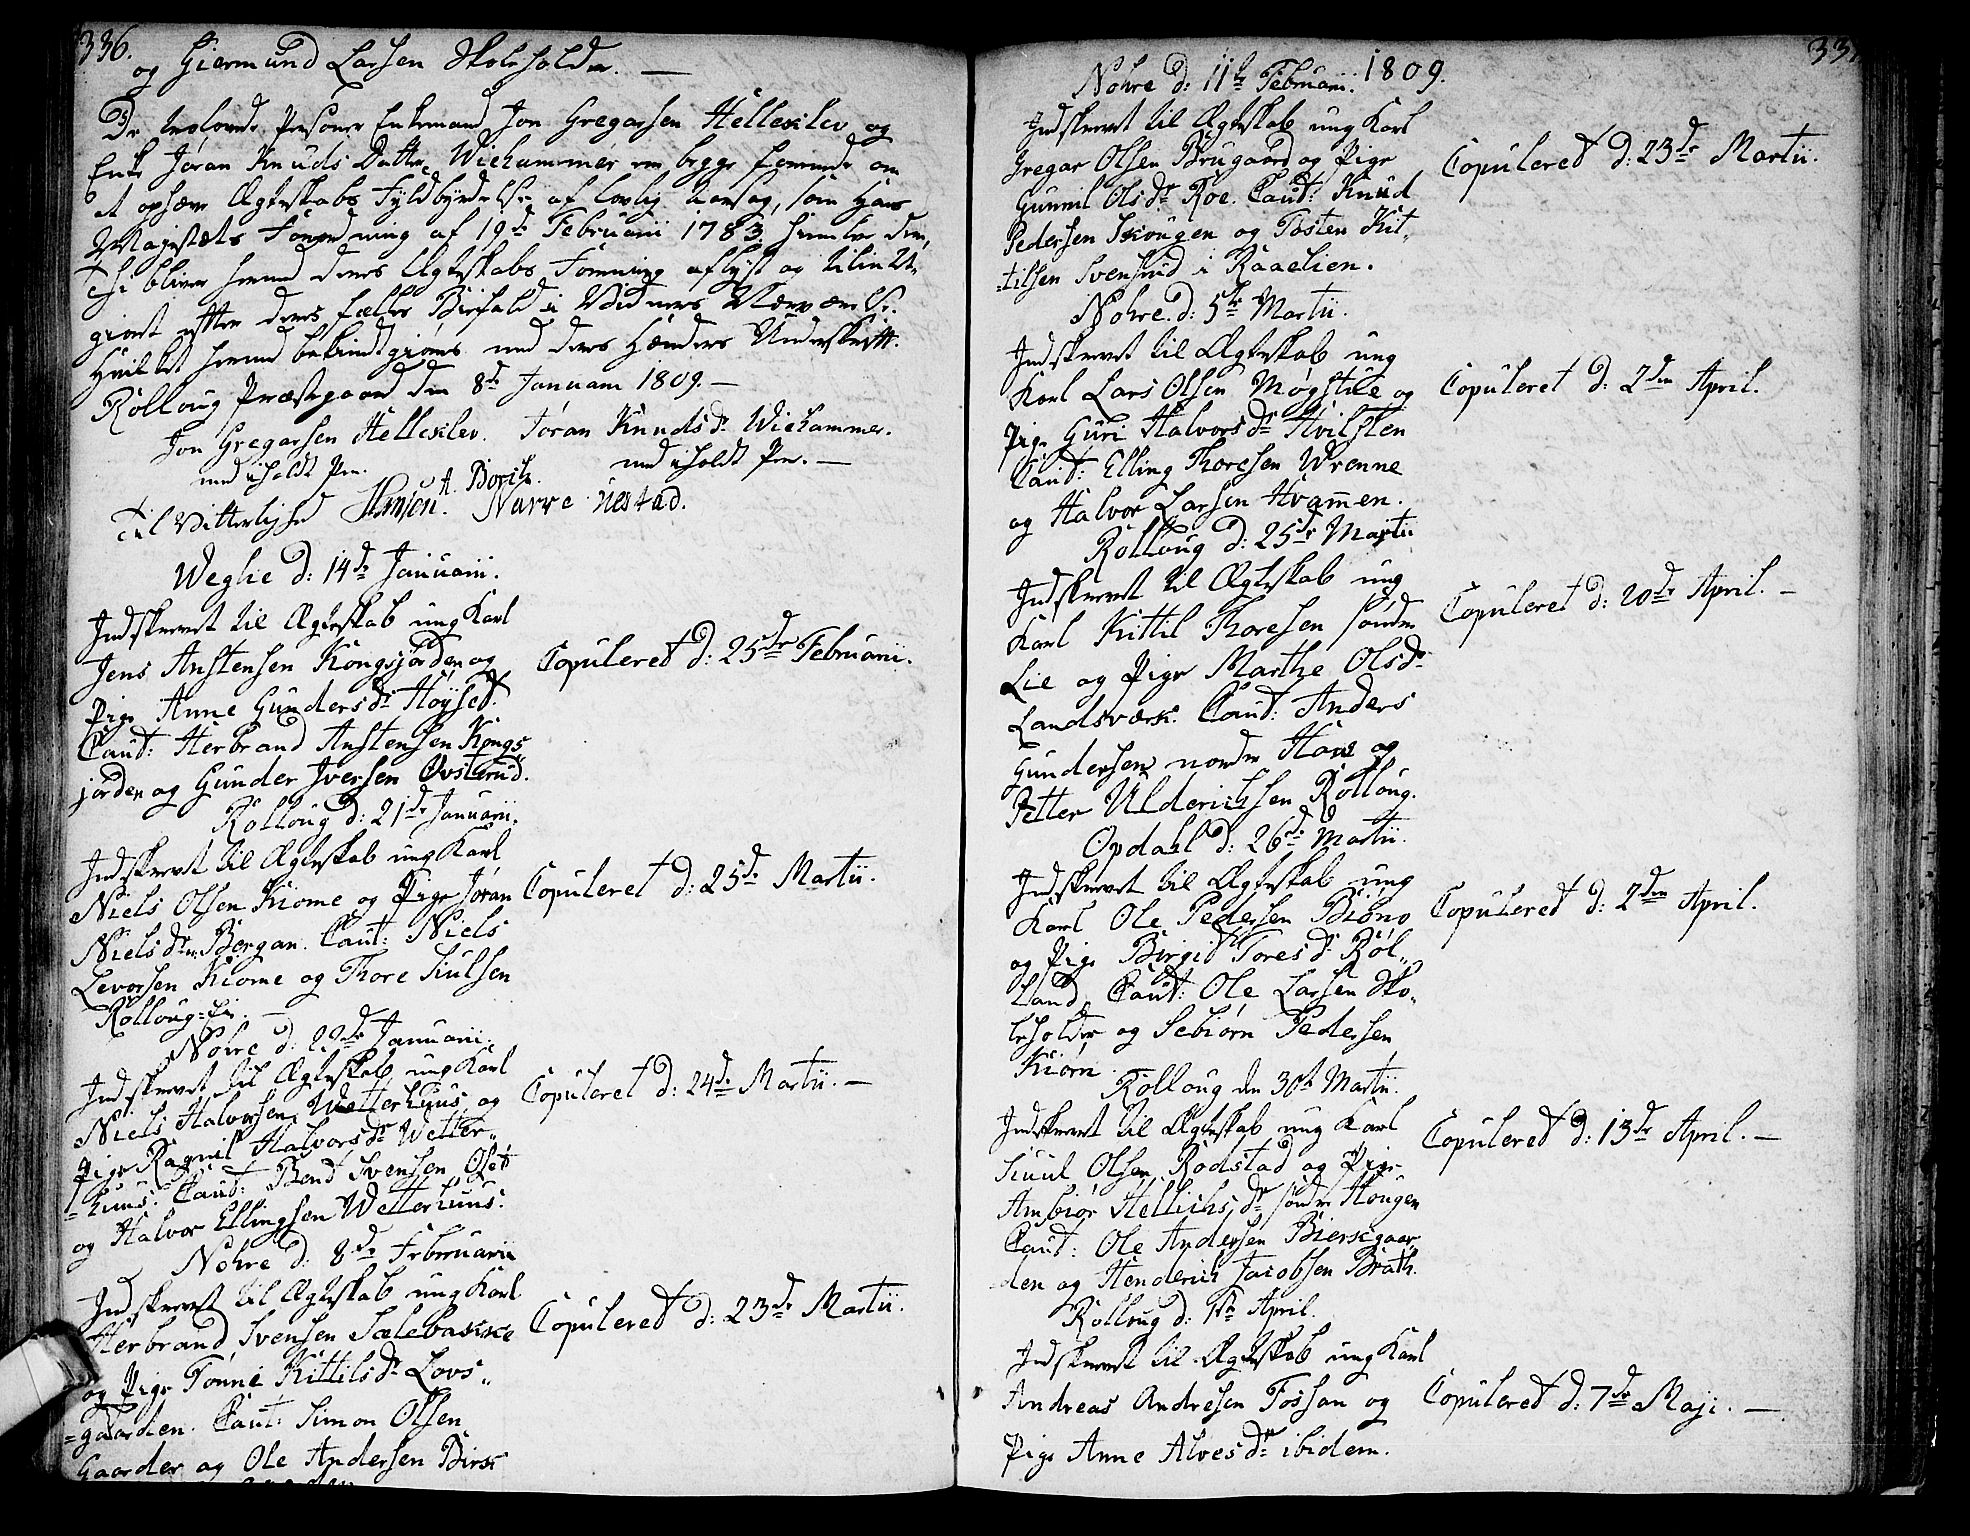 336.
og Giermund Larsen Skoleholder. —
De trolovede Personer Enkemand Jon Gregarsen Helleslev og
Enke Jøran Knuds Datter Wiehammer er begge foreenede om
at ophæve Ægteskabs Fyldbyrdelse af lovlig Aarsag, som Hans
Majestæts Forordning af 19de Februarii 1783 hiemler dem,
Thi bliver herved deres Ægteskabs Foreening aflyst og tilintet-
giort efter deres fælles Bifald i Vidners Nærværelse.
Hvilket herved bekiendtgiøres med deres Hænders Underskrift.
Rolloug Præstegaard den 8de Januarii 1809. —
Jon Gregarsen Helleslev. Jøran Knudsdr Wiehammer.
med iholdt Pen. med iholdt Pen. —
Til Vitterlighed Narve Uestad.
Weglie d: 14de Januarii.
Indskrevet til Ægteskab ung Karl
Jens Anstensen Kongsjorden og
Pige Anne Gundersdr Høyset.
Caut: Herbrand Anstensen Kongs-
jorden og Gunder Iversen Øvsterud.
Copuleret d: 25de Februarii.
Rolloug d: 21de Januarii.
Indskrevet til Ægteskab ung Karl
Niels Olsen Kiome og Pige Jøran
Nielsdr Bergan. Caut: Niels
Levorsen Kiome og Thore Siulsen
Rolloug-Ei. —
Copuleret d: 25de Martii.
Nohre d: 22de Januarii.
Indskrevet til Ægteskab ung Karl
Niels Halvorsen Wetterhuus og
Pige Ragnil Halvorsdr Wetter-
huus. Caut: Bend Svensen Oset
og Halvor Ellingsen Wetterhuus.
Copuleret d: 24de Martii. —
Nohre d: 8de Februarii
Indskrevet til Ægteskab ung Karl
Herbrand Svensen Sælebakke
og Pige Tonne Kittilsdr Lovs-
gaarden. Caut: Simon Olsen
Gaarder og Ole Andersen Birke
Copuleret d: 23de Martii.
337
Nohre d: 11te Februarii. 1809.
Indskrevet til Ægteskab ung Karl
Gregar Olsen Brugaard og Pige
Gunnil Olsdr Roe. Caut: Knud
Pedersen Skougen og Tosten Kit-
tilsen Svensrud i Raaelien.
Copuleret d: 23de Martii.
Nohre d: 5te Martii.
Indskrevet til Ægteskab ung
Karl Lars Olsen Møgstue og
Pige Guri Halvorsdr Hvilsten
Caut: Elling Thoresen Wrenne
og Halvor Larsen Hvammen.
Copuleret d: 2den April.
Rolloug d: 25de Martii
Indskrevet til Ægteskab ung
Karl Kittil Thoresen søndre
Lie og Pige Marthe Olsdr
Landsværk. Caut: Anders
Gundersen nordre Have og
Petter Ulderichsen Rolloug.
Copuleret d: 20de April. —
Opdahl d: 26de Martii.
Indskrevet til Ægteskab ung
Karl Ole Pedersen Biøno
og Pige Birgit Toresdr Røl-
land. Caut: Ole Larsen Sko-
leholder og Sebiørn Pedersen
Kiørn.
Copuleret d: 2den April.
Rolloug den 30te Martii.
Indskrevet til Ægteskab ung Karl
Siuul Olsen Rodstad og Pige
Ambiør Hellichsdr søndre Hougen
Caut: Ole Andersen Bierkgaar-
den og Henderich Jacobsen Brath.
Copuleret d: 13de April. —
Rolloug d: 1ste April.
Indskrevet til Ægteskab ung Karl
Andreas Andresen Fossan og
Pige Anne Alvesdr ibidem.
Copuleret d: 7de Maji. —